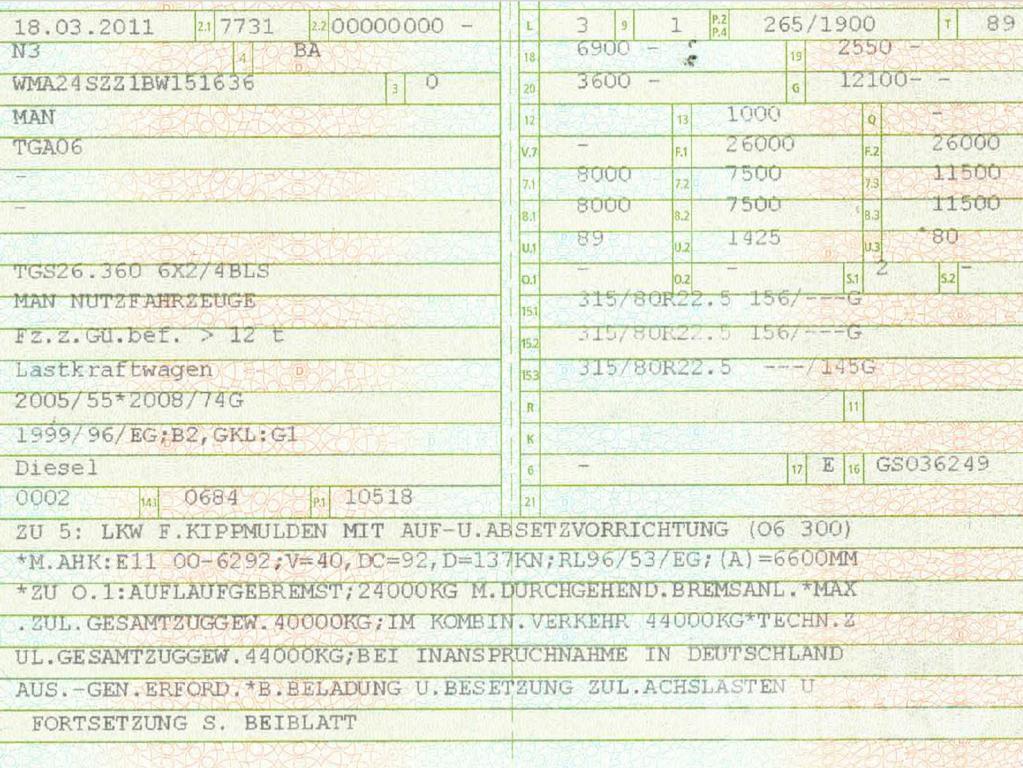 18.03.2011 2.1 7731 2.2 00000000 - L 3 9 1 P.2 P.4 265/1900 T 89
N3 4 BA 18 6900 - 19 2550 -
WMA24SZZ1BW151636 3 0 20 3600 - G 12100- -
MAN 12 13 1000 Q -
TGA06 V.7 - F.1 26000 F.2 26000
- 7.1 8000 7.2 7500 7.3 11500
- 8.1 8000 8.2 7500 8.3 11500
U.1 89 U.2 1425 U.3 *80
TGS26.360 6X2/4BLS O.1 - O.2 - S.1 2 S.2 -
MAN NUTZFAHRZEUGE 15.1 315/80R22.5 156/---G
Fz.z.Gü.bef. > 12 t 15.2 315/80R22.5 156/---G
Lastkraftwagen 15.3 315/80R22.5 ---/145G
2005/55*2008/74G R 11
1999/96/EG;B2,GKL:G1 K
Diesel 6 - 17 E 16 GS036249
0002 14.1 0684 P.1 10518 21
ZU 5: LKW F.KIPPMULDEN MIT AUF-U.ABSETZVORRICHTUNG (06 300)
*M.AHK:E11 00-6292;V=40,DC=92,D=137KN;RL96/53/EG;(A)=6600MM
*ZU O.1:AUFLAUFGEBREMST;24000KG M.DURCHGEHEND.BREMSANL.*MAX
.ZUL.GESAMTZUGGEW.40000KG;IM KOMBIN.VERKEHR 44000KG*TECHN.Z
UL.GESAMTZUGGEW.44000KG;BEI INANSPRUCHNAHME IN DEUTSCHLAND
AUS.-GEN.ERFORD.*B.BELADUNG U.BESETZUNG ZUL.ACHSLASTEN U
FORTSETZUNG S. BEIBLATT